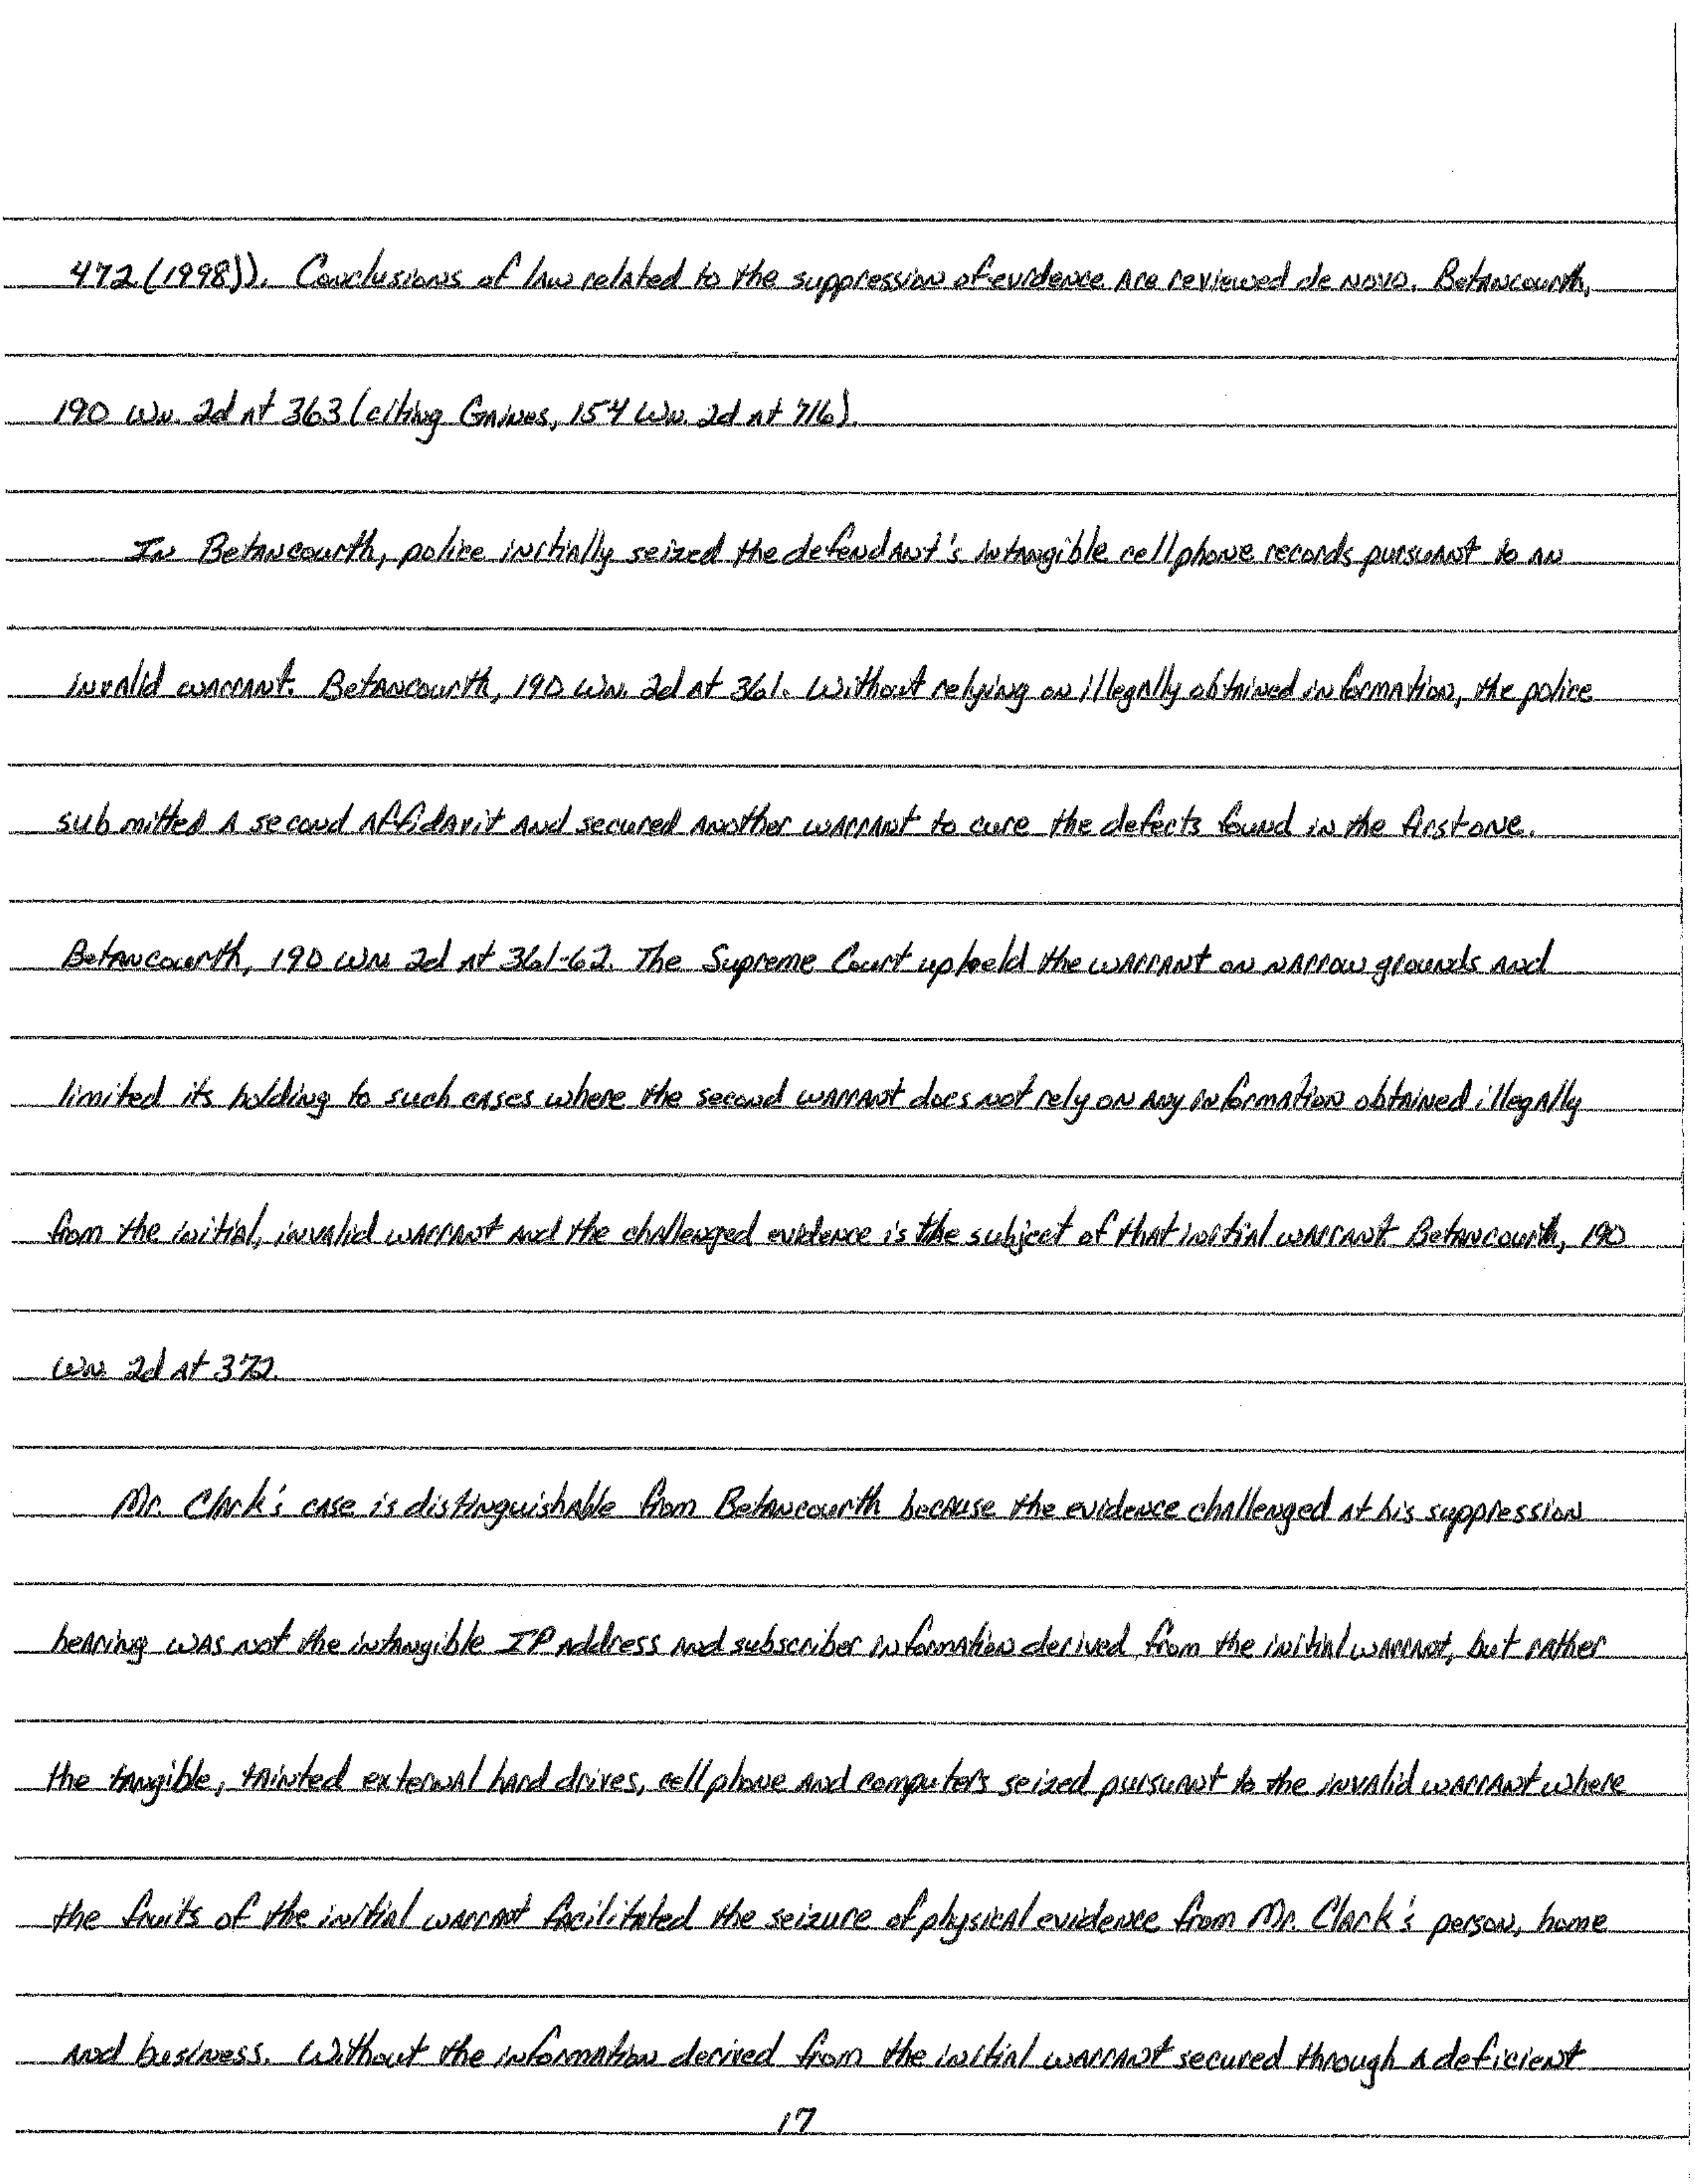 472 (1998)). Conclusions of law related to the suppression of evidence are reviewed de novo. Betancourth,
190 Wn. 2d at 363 (citing Gaines, 154 Wn. 2d at 716).
In Betancourth, police initially seized the defendant's intangible cell phone records pursuant to an
invalid warrant. Betancourth, 190 Wn. 2d at 361. Without relying on illegally obtained information, the police
submitted a second affidavit and secured another warrant to cure the defects found in the first one.
Betancourth, 190 Wn 2d at 361-62. The Supreme Court upheld the warrant on narrow grounds and
limited its holding to such cases where the second warrant does not rely on any information obtained illegally
from the initial, invalid warrant and the challenged evidence is the subject of that initial warrant. Betancourth, 190
Wn. 2d at 372.
Mr. Clark's case is distinguishable from Betancourth because the evidence challenged at his suppression
hearing was not the intangible IP address and subscriber information derived from the initial warrant, but rather
the tangible, tainted external hard drives, cell phone and computers seized pursuant to the invalid warrant where
the fruits of the initial warrant facilitated the seizure of physical evidence from Mr. Clark's person, home
and business. Without the information derived from the initial warrant secured through a deficient
17